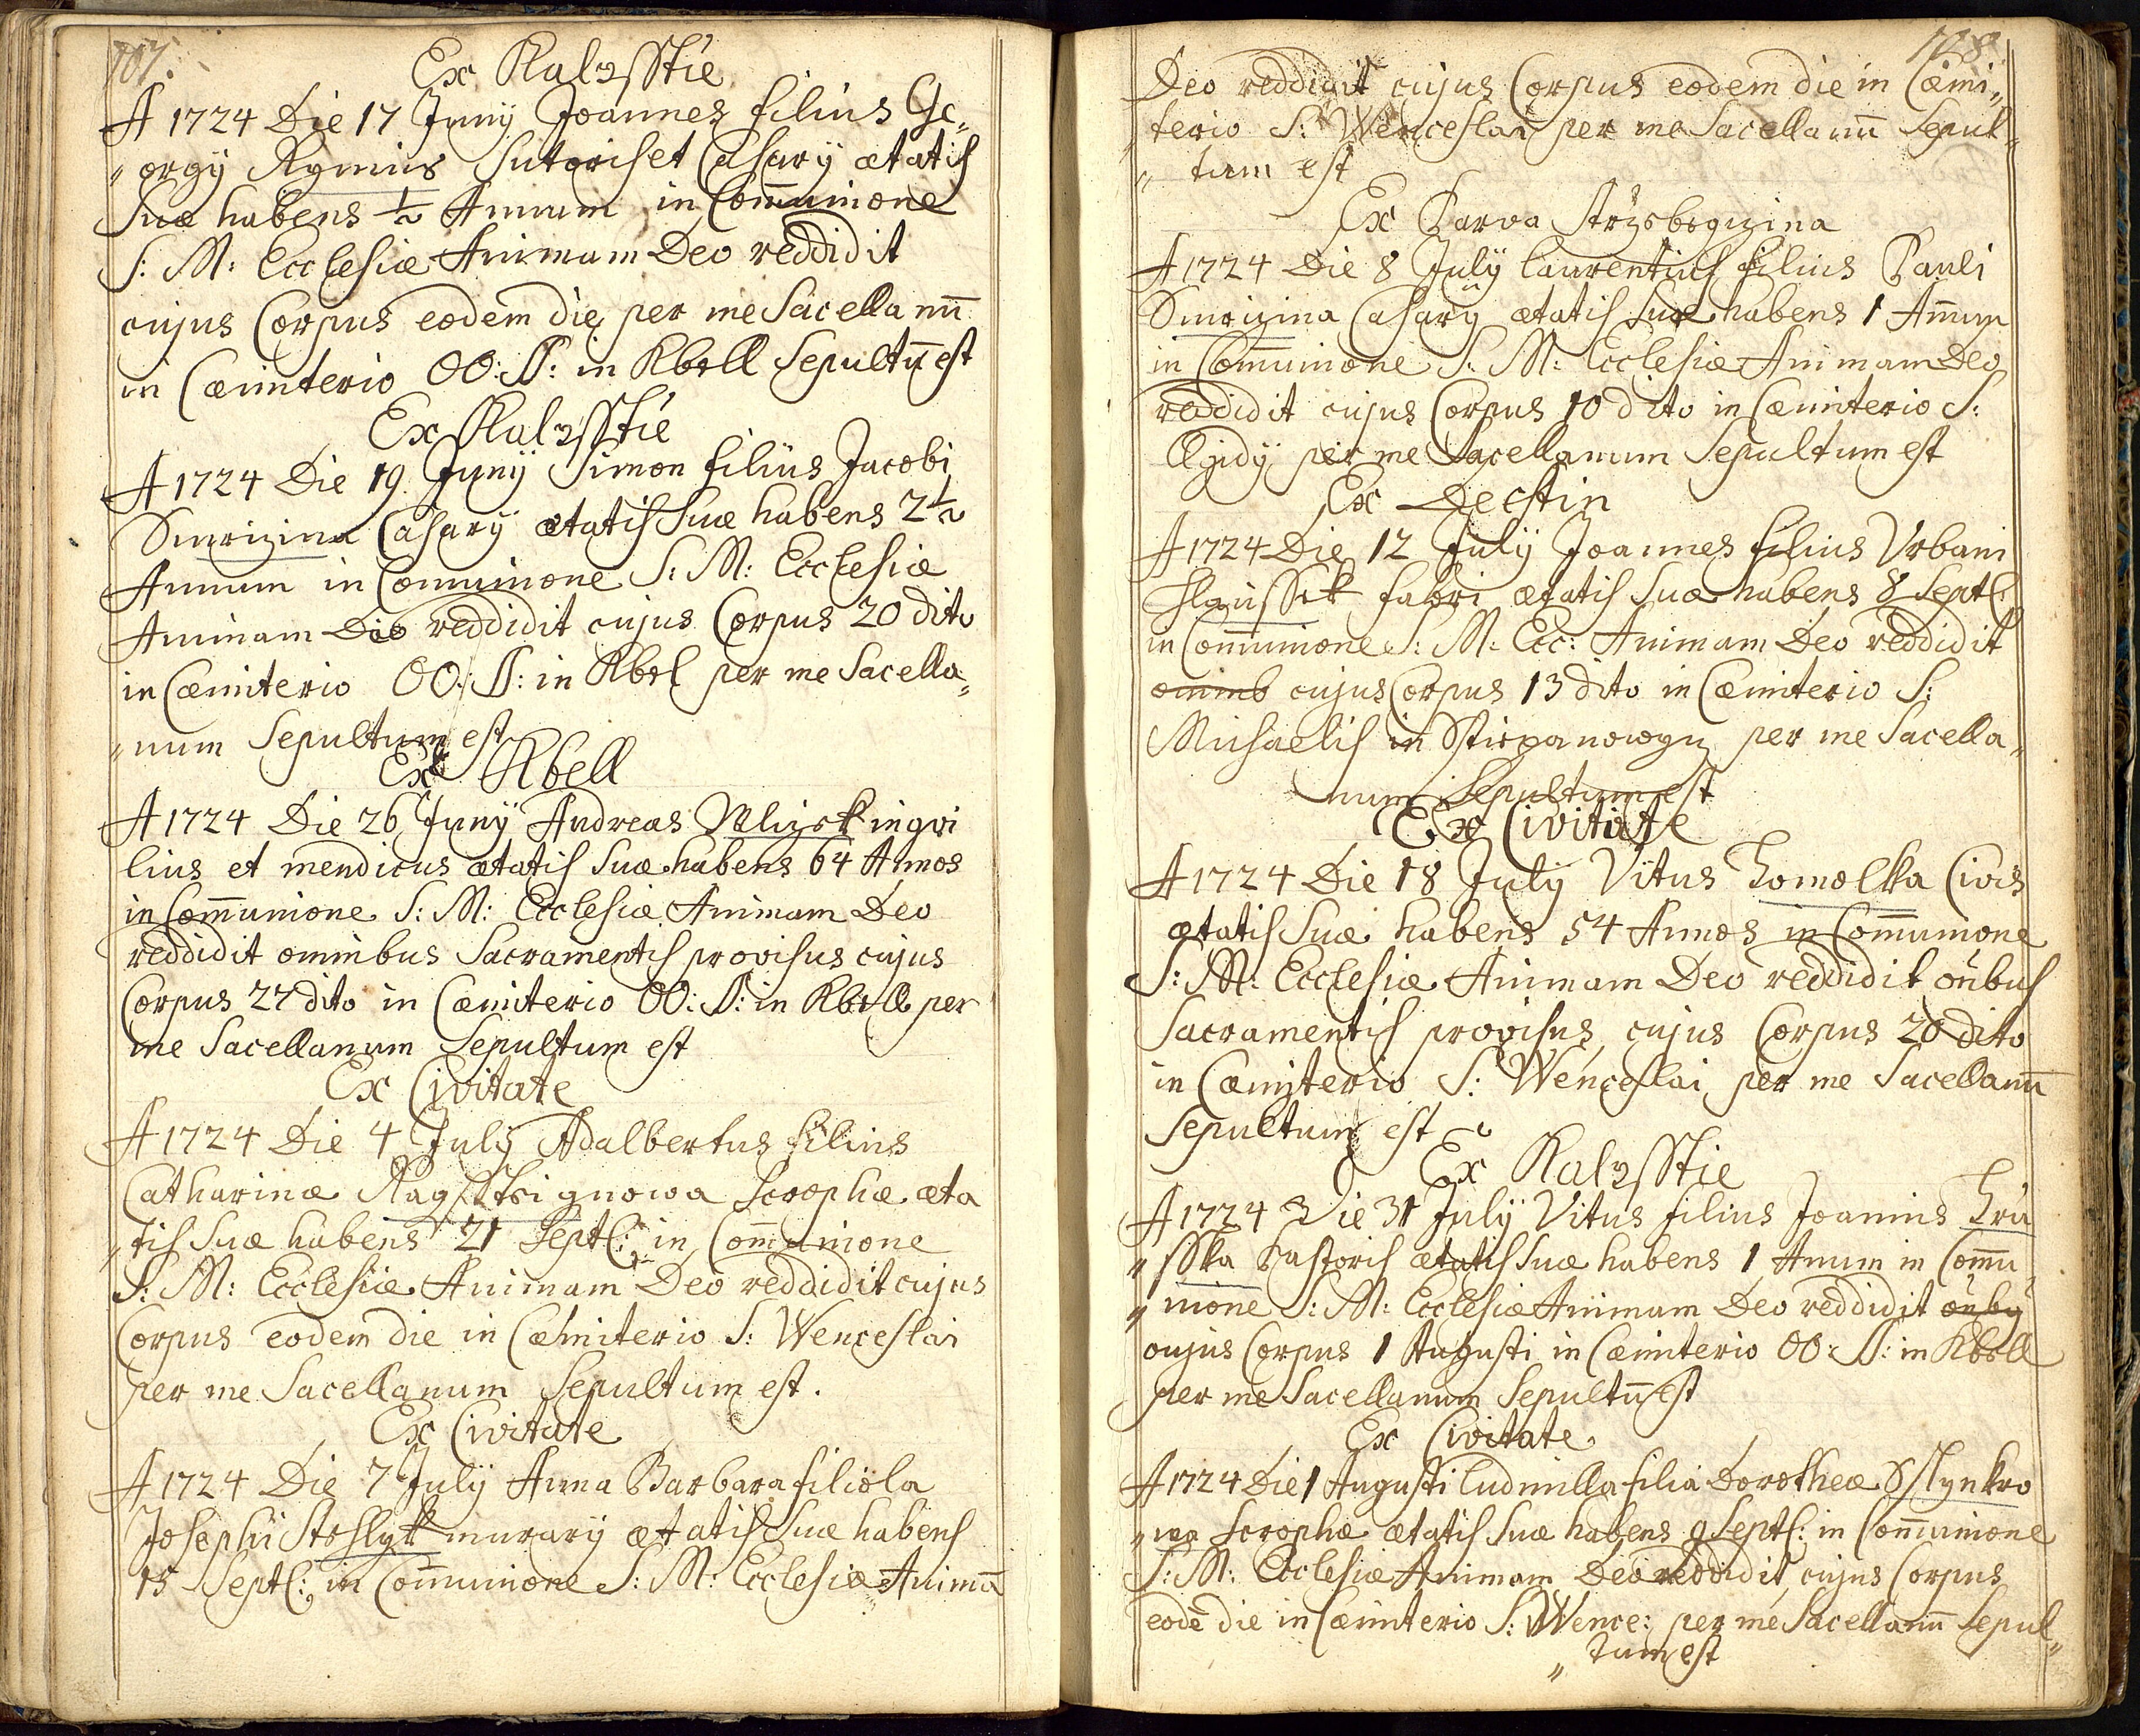 107.
Ex Kalzsstie
A 1724 Die 17 Junÿ Joannes filius Ge„
„orgÿ Rymus Sutoris et Casarÿ ætatis
Suæ habens ½ Annum in Com̄unione
S: M: Ecclesiæ Animam Deo reddidit
cujus Corpus eodem die per me Sacellanū
in Cæmiterio OO: SS: in Kbell Sepultū est
Ex Kalzsstie
A 1724 Die 19 Junÿ Simon filius Jacobi
Smrizina Casarÿ ætatis Suæ habens 2½
Annum in Communione S: M: Ecclesiæ
Animam Deo reddidit cujus Corpus 20 dito
in Cæmiterio OO: SS: in Kbel per me Sacella„
„num Sepultum est
Ex Kbell
A 1724 Die 26 Junÿ Andreas Mlizek inqvi
linus et mendicus ætatis Suæ habens 64 Annos
in Com̄unione S: M: Ecclesiæ Animam Deo
reddidit omnibus Sacramentis provisus cujus
Corpus 27 dito in Cæmiterio OO: SS: in Kbell per
me Sacellanum Sepultum est
Ex Civitate
A 1724 Die 4 Julÿ Adalbertus filius
Catharinæ Scrophæ æta
„tis Suæ habens 21 Sept: in Com̄unione
S: M: Ecclesiæ Animam Deo reddidit cujus
Corpus eodem die in Cæmiterio S: Wenceslai
per me Sacellanum Sepultum est.
Ex Civitate
A 1724 Die 7 Julÿ Anna Barbara filiola
Josephi Stehlyk murarÿ ætatis Suæ habens
15 Sept: in Com̄unione S: M: Ecclesiæ Animā
108
Deo reddidit cujus Corpus eodem die in Cæmi„
„terio S: Wenceslai per me Sacellanū Sepul„
„tum est
Ex Parva Strzebegizina
A 1724 Die 8 Julÿ Laurentius filius Pauli
Smrizina Casarÿ ætatis Suæ habens 1 Annum
in Com̄unione S: M: Ecclesiæ Animam Deo
reddidit cujus Corpus 10 dito in Cæmiterio S:
Ægidÿ per me Sacellanum Sepultum est
Ex Decstin
A 1724 Die 12 Julÿ Joannes filius Vrbani
Hlaussek fabri ætatis Suæ habens 8 Sept:
in Com̄unione S: M: Ecc: Animam Deo reddidit
omnib cujus Corpus 13 dito in Cæmiterio S:
Michaelis in Sstiepanowgiz per me Sacella„
num Sepultum est
Ex Civitate
A 1724 Die 18 Julÿ Vitus Tomolka Civis
ætatis Suæ habens 54 Annos in Com̄unione
S: M: Ecclesiæ Animam Deo reddidit on̄bus
Sacramentis provisus cujus Corpus 20 dito
in Cæmiterio S: Wenceslai per me Sacellanū
Sepultum est
Ex Kalzsstie
A 1724 Die 31 Julÿ Vitus filius Joannis Tru
„sska Pastoris ætatis Suæ habens 1 Annum in Com̄u
„nione S: M: Ecclesiæ Animam Deo reddidit on̄bg
cujus Corpus 1 Augusti in Cæmiterio OO: SS: in Kbell
per me Sacellanum Sepultū est
Ex Civitate
A 1724 Die 1 Augusti Ludmilla filia Dorotheæ Sslynkro
„wa Scrophæ ætatis Suæ habens 9 Sept: in Com̄unione
S: M: Ecclesiæ Animam Deo reddidit cujus Corpus
eodē die in Cæmiterio S: Wence: per me Sacellanū Sepul„
„tum est